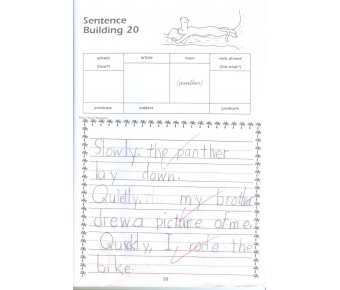 Sentence
Building 20
adverb article noun verb phrase
(How?) (Did what?)
(panther)
predicate subject predicate
Slowly, the panther
lay down.
Quietly, my brother
drew a picture of me.
Quickly, I rode the
bike.
20